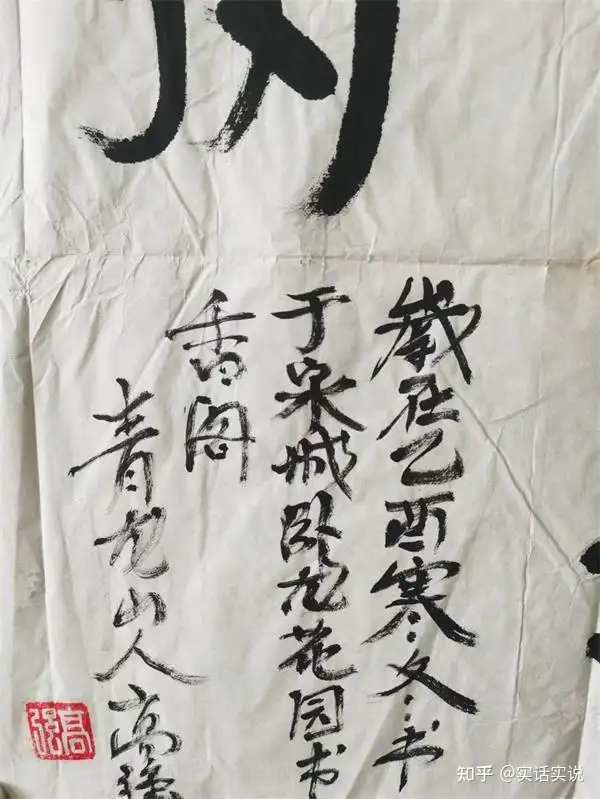 岁在乙酉寒冬书
于泉城卧龙花园书
香阁
青龙山人高强
高强
知乎 @实话实说